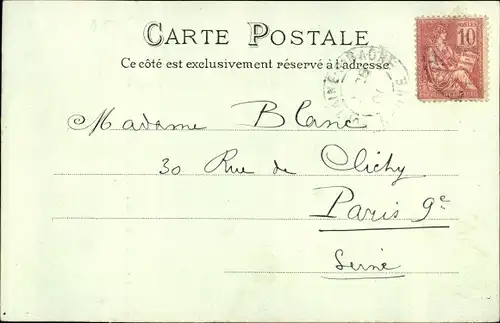 CARTE POSTALE
Ce côté est exclusivement réservé à l'adresse
10
POSTES
Madame Blanc
30 Rue de Clichy
Paris 9e
Seine